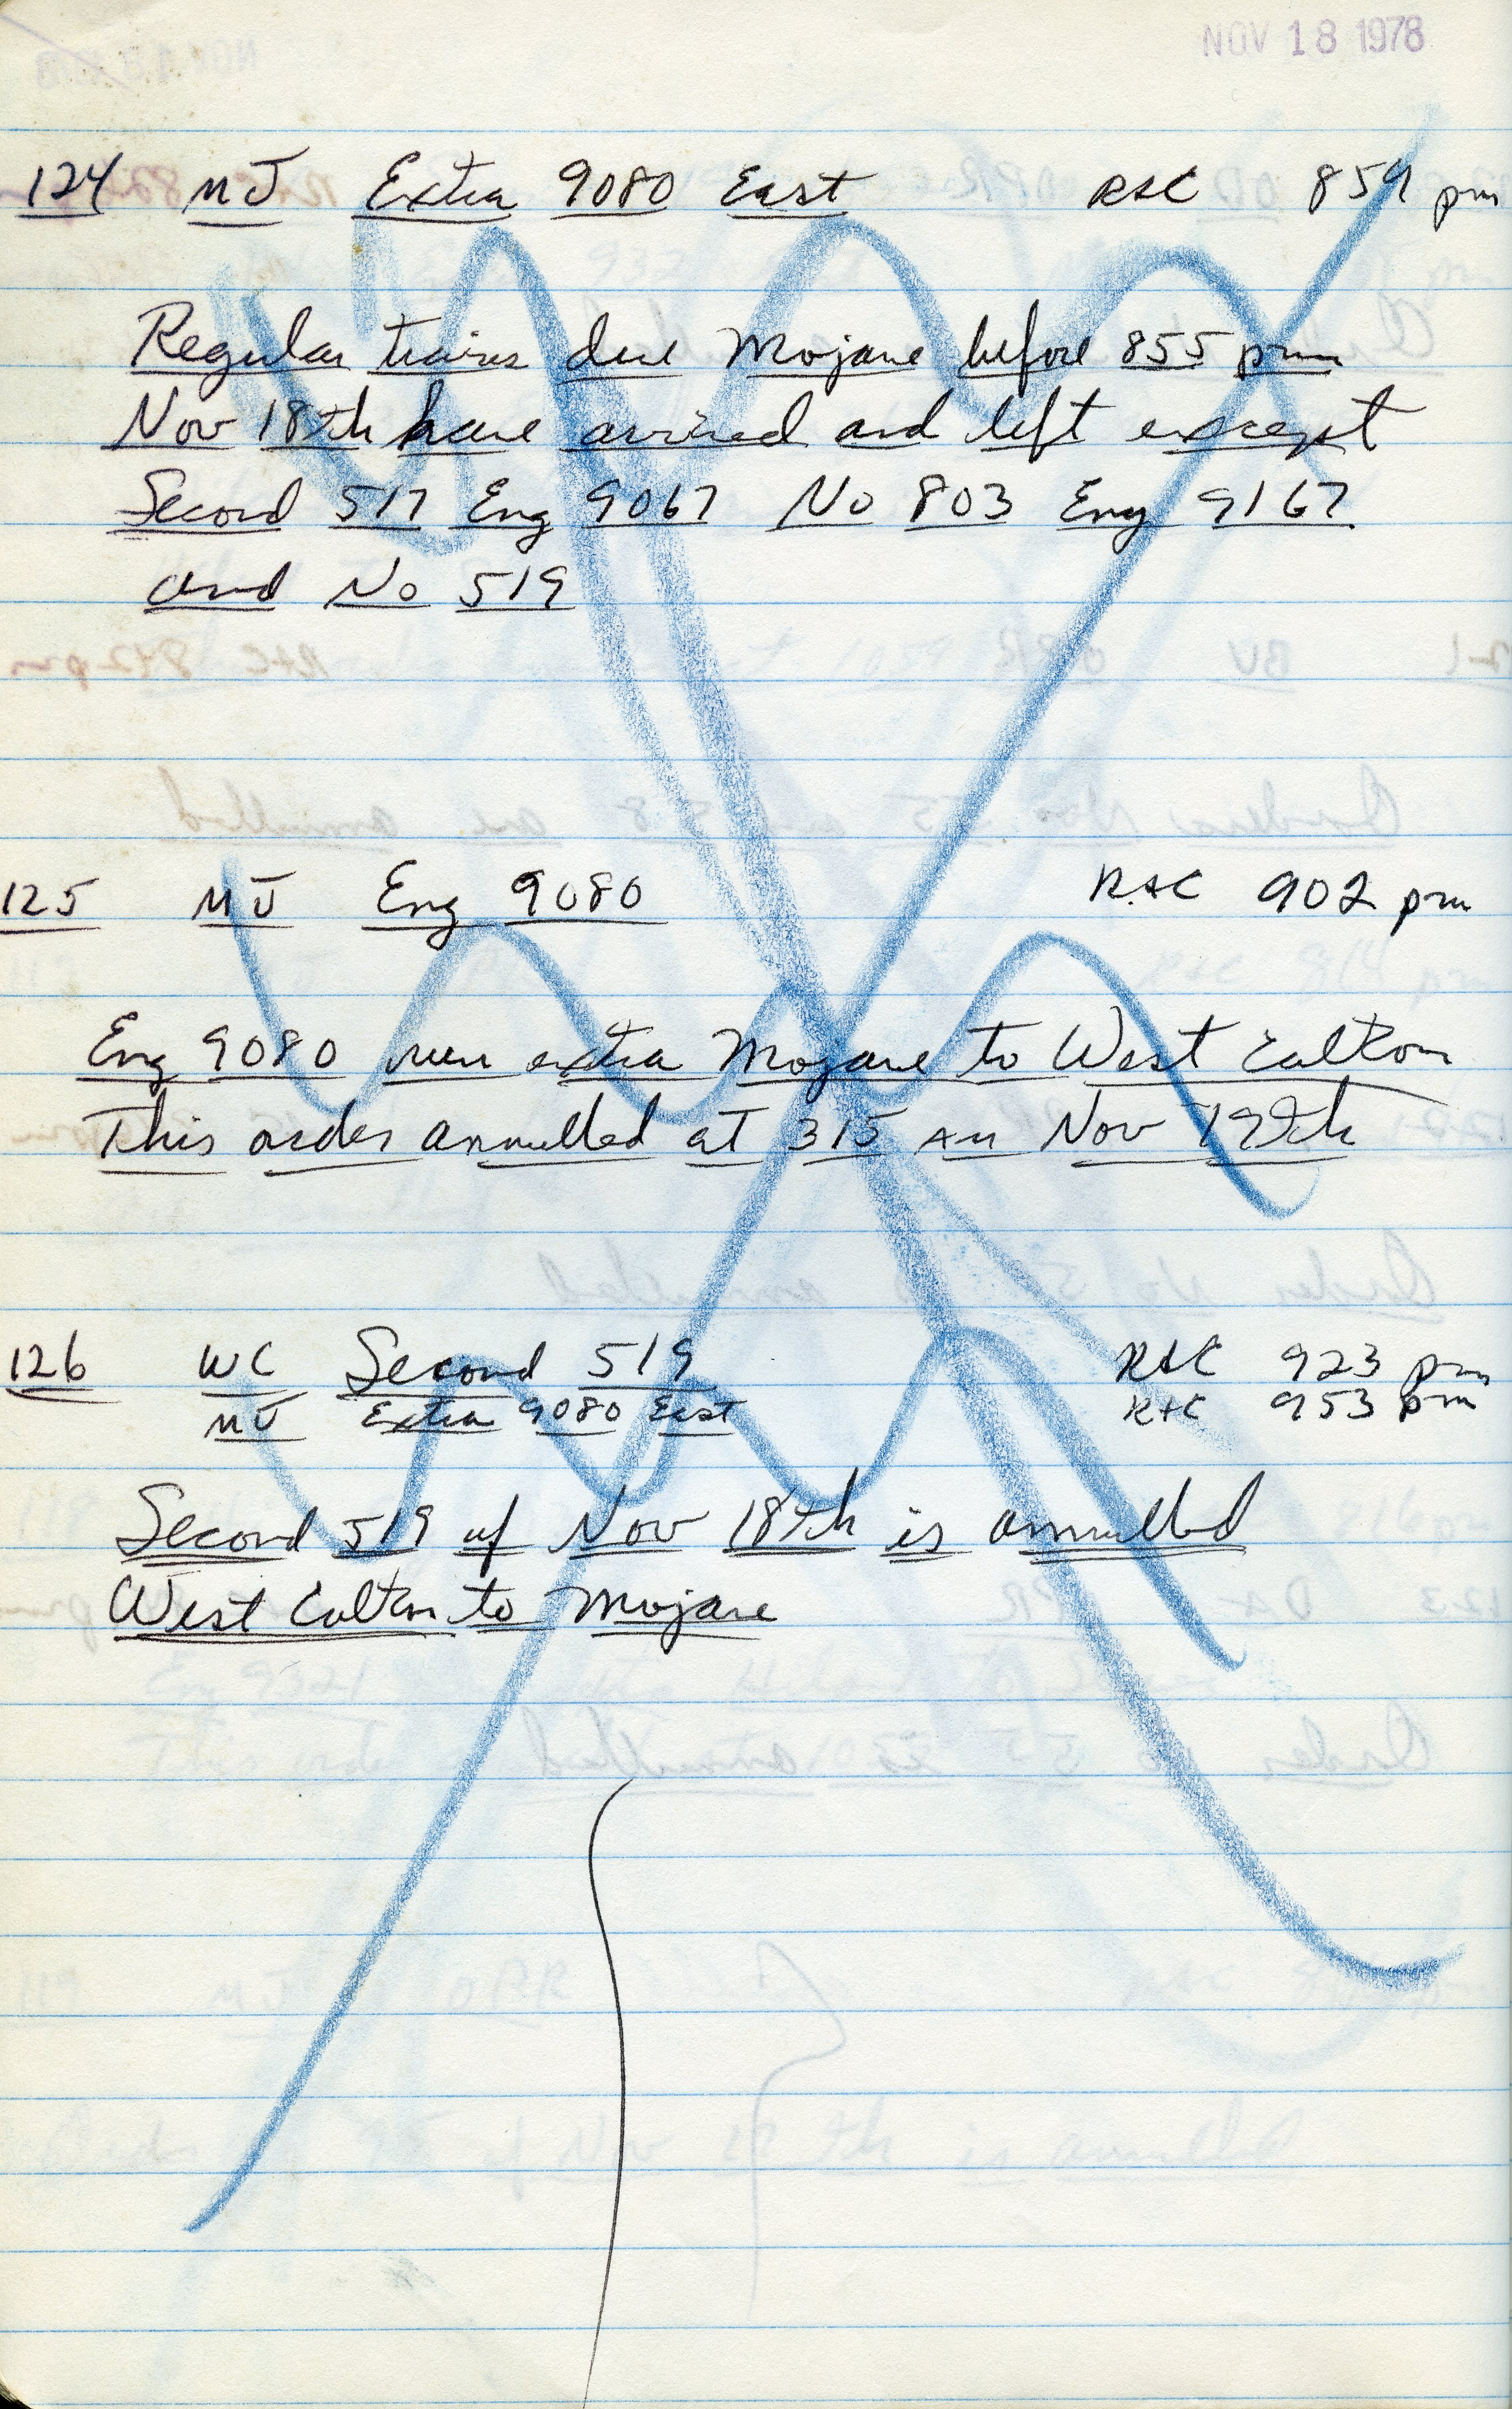 NOV 18 1978
124 MJ Extra 9080 East RSC 859 pm
Regular trains due Mojave before 855 pm
Nov 18th have arrived and left except
Second 517 Eng 9067 No 803 Eng 9167
and No 519
125 MJ Eng 9080 RSC 902 pm
Eng 9080 run extra Mojave to West Colton
This order annulled at 315 AM Nov 19th
126 WC Second 519 RSC 923 pm
MJ Extra 9080 East RSC 953 pm
Second 519 of Nov 18th is annulled
West Colton to Mojave